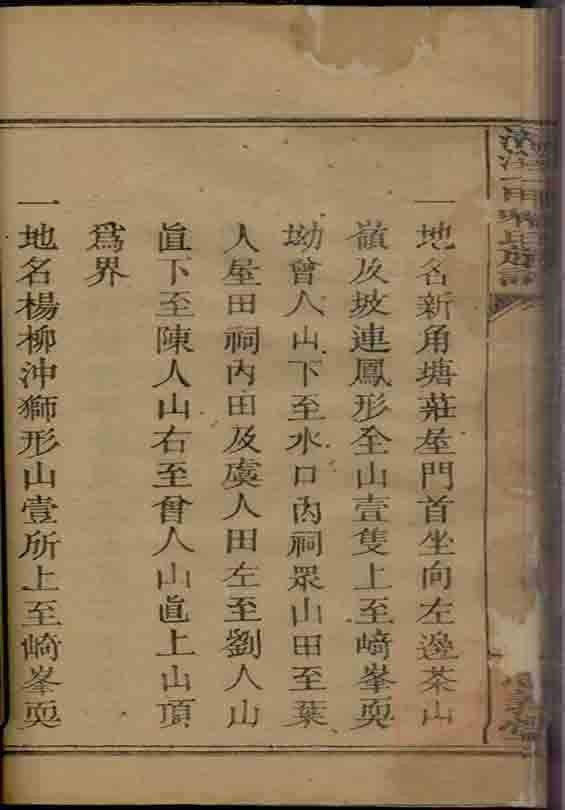 一地名新角塘莊屋門首坐向左邊茶山
嶺及坡連鳳形全山壹隻上至﨑峯奀
坳曾人山下至水口內祠眾山田至葉
人屋田祠內田及虞人田左至劉人山
直下至陳人山右至曾人山直上山頂
為界
一地名楊柳沖獅形山壹所上至﨑峯奀